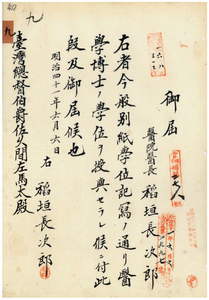 九
御届
醫院醫長 稻垣長次郎
右者今般別紙學位記寫ノ通リ醫
學博士ノ學位ヲ授與セラレ候ニ付此
段及御届候也
明治四十一年六月六日
右 稻垣長次郎
臺灣總督伯爵佐久間左馬太殿